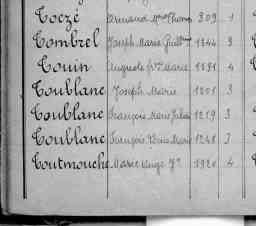 Toezé Armand Mie Thomas 809 1
Tombrel Joseph Marie Guill 1844 3
Touin Auguste Fr Marie 1891 4
Toublanc Joseph Marie 1201 3
Toublanc François Marie Julien 1219 3
Toublanc François Louis Marie 1248 3
Toutmouche Marie Ange Jh 1920 4